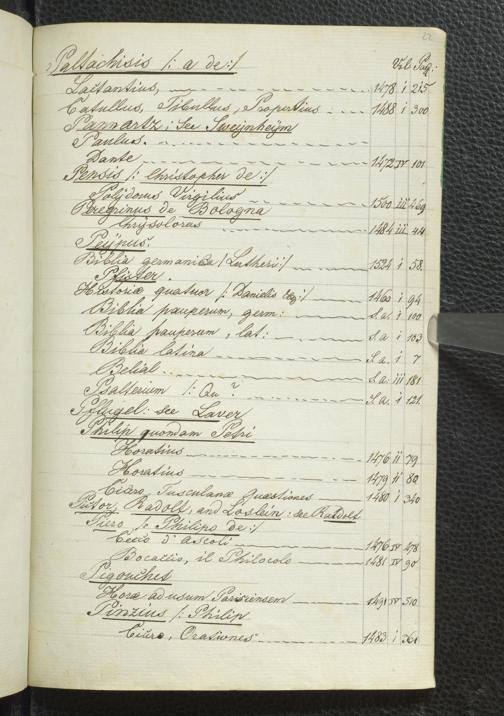 22
Paltachisis /: a de :/ Vol: Pag:
Lactantius, 1478 i 215
Catullus, Tibullus, Propertius 1488 i 300
Pannartz: See Sweijnheijm
Paulus.
Dante 1472 IV 101
Pensis /: Christopher de :/
Polijdorus Virgilius 1500 iii 469
Peregrinus de Bologna
Chrijsoloras 1484 iii 44
Peijpus.
Biblia germanica /: Lutheri :/ 1524 i 58.
Pfister.
Historiæ quatuor /: Danielis &c :/ 1460 i 94
Biblia pauperum, germ: s.a. i 100
Biblia pauperum, lat: s.a. i 103
Biblia latina s.a. i 7
Belial s.a. iii 181
Psalterium /: Qu? s.a. i 121
Pflugel: see Laver
Philip quondam Petri
Horatius 1476 ii 79
Horatius 1479 ii 80
Cicero, Tusculanæ quæstiones 1480 i 340
Pictor, Radolt, and Loslein: see Ratdolt
Piero /: Philipo de :/
Cecco d'Ascoli 1476 IV 478
Bocaccio, il Philocolo 1481 IV 90
Pigouchet
Horæ ad usum Parisiensem 1491 IV 510
Pinzius /: Philip
Cicero, Orationes 1483 i 361